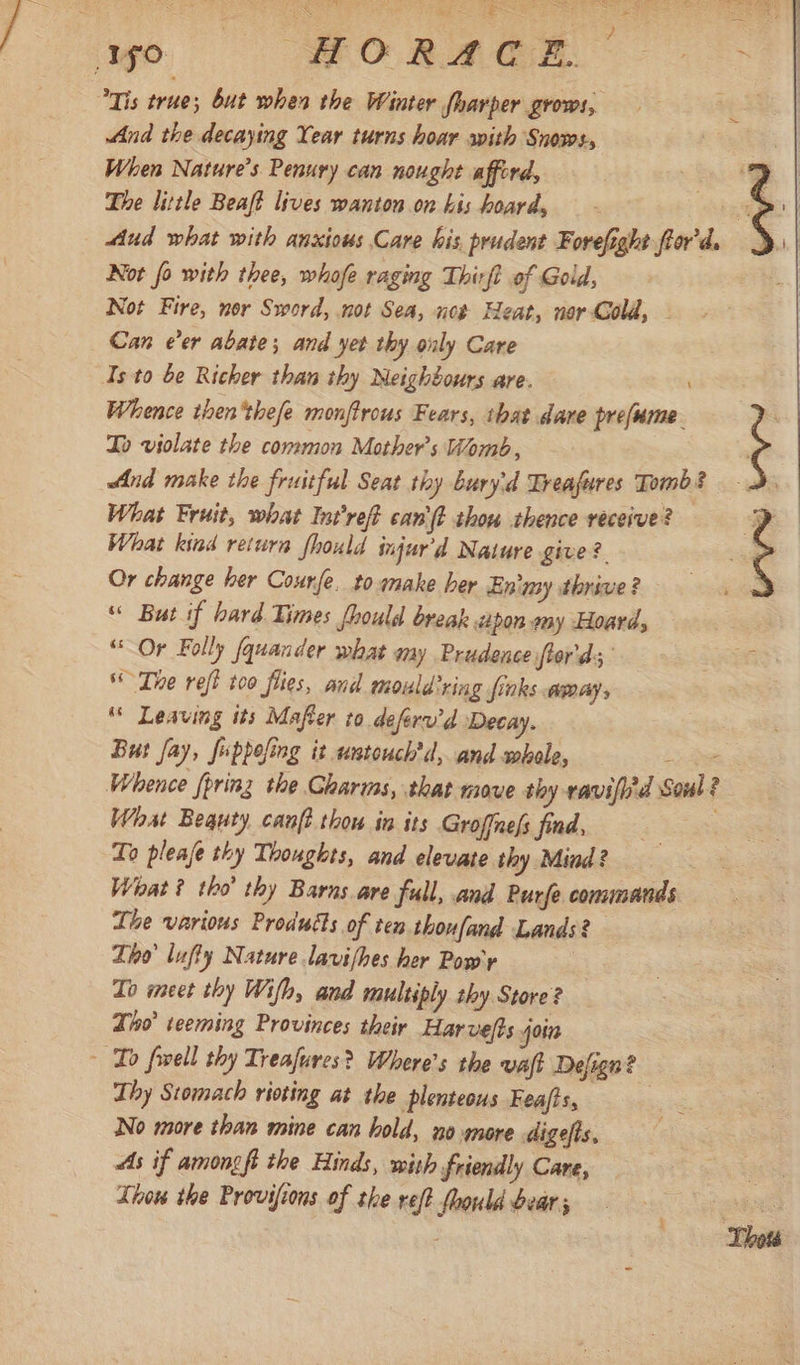 150 HORACE.
'Tis true; but when the Winter ſharper grows,
And the decaying Year turns hoar with Snows,
When Nature's Penury can nought afford,
The little Beaſt lives wanton on his hoard,
And what with anxious Care his prudent Foreſight ſtor'd.
Not ſo with thee, whoſe raging Thirſt of Gold,
Not Fire, nor Sword, not Sea, not Heat, nor Cold,
Can e'er abate; and yet thy only Care
Is to be Richer than thy Neighbours are.
Whence then theſe monſtrous Fears, that dare preſume
To violate the common Mother's Womb,
And make the fruitful Seat thy bury'd Treaſures Tomb?
What Fruit, what Int'reſt can'ſt thou thence receive?
What kind return ſhould injur'd Nature give?
Or change her Courſe, to make her En'my thrive?
“ But if hard Times ſhould break upon my Hoard,
“ Or Folly ſquander what my Prudence ſtor'd;
“ The reſt too flies, and mould'ring ſinks away,
“ Leaving its Maſter to deſerv'd Decay.
But ſay, ſuppoſing it untouch'd, and whole,
Whence ſpring the Charms, that move thy raviſh'd Soul?
What Beauty canſt thou in its Groſſneſs find,
To pleaſe thy Thoughts, and elevate thy Mind?
What? tho' thy Barns are full, and Purſe commands
The various Products of ten thouſand Lands?
Tho' luſty Nature laviſhes her Pow'r
To meet thy Wiſh, and multiply thy Store?
Tho' teeming Provinces their Harveſts join
To ſwell thy Treaſures? Where's the vaſt Deſign?
Thy Stomach rioting at the plenteous Feaſts,
No more than mine can hold, no more digeſts.
As if amongſt the Hinds, with friendly Care,
Thou the Proviſions of the reſt ſhould bear;
Thou